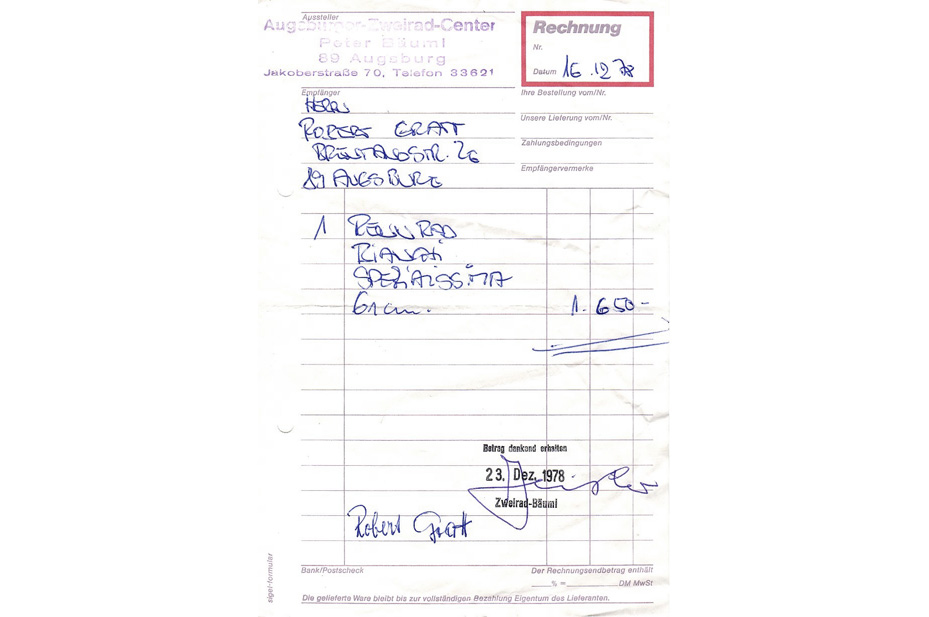 Aussteller
Augsburger-Zweirad-Center
Peter Bäuml
89 Augsburg
Jakoberstraße 70, Telefon 33621
Rechnung
Nr.
Datum 16.12 78
Empfänger
HERRN
ROBERT GRATT
BRENTANOSTR. 26
89 AUGSBURG
Ihre Bestellung vom/Nr.
Unsere Lieferung vom/Nr.
Zahlungsbedingungen
Empfängervermerke
1 RENNRAD
RIANCHI
SPEZIALISSIMA
61 cm. 1.650-
Betrag dankend erhalten
23. Dez. 1978
Zweirad-Bäuml
Robert Gratt
Bank/Postscheck
Der Rechnungsendbetrag enthält
% = DM MwSt
Die gelieferte Ware bleibt bis zur vollständigen Bezahlung Eigentum des Lieferanten.
sigel-formular